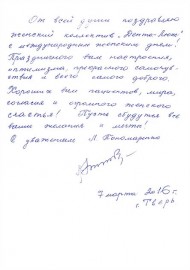 От всей души поздравляю
женский коллектив „Дента-Люкс“
с международным женским днём!
Праздничного вам настроения,
оптимизма, прекрасного самочув-
ствия и всего самого доброго.
Хороших вам пациентов, мира,
согласия и огромного женского
счастья! Пусть сбудутся все
ваши желания и мечты!
С уважением Л. Пономаренко
7 марта 2016 г.
г. Тверь